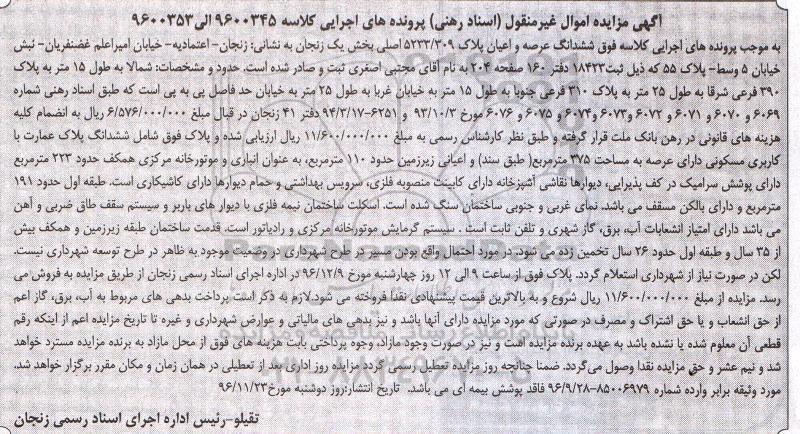 آگهی مزایده اموال غیرمنقول (اسناد رهنی) پرونده های اجرایی کلاسه ۹۶۰۰۳۴۵ الی ۹۶۰۰۳۵۳
به موجب پرونده های اجرایی کلاسه فوق ششدانگ عرصه و اعیان پلاک ۵۲۳۳/۳۰۹ اصلی بخش یک زنجان به نشانی: زنجان- اعتمادیه- خیابان امیراعلم غضنفریان- نبش
خیابان ۵ وسط- پلاک ۵۵ که ذیل ثبت ۱۸۴۲۳ دفتر ۱۶۰ صفحه ۲۰۴ به نام آقای مجتبی اصغری ثبت و صادر شده است. حدود و مشخصات: شمالا به طول ۱۵ متر به پلاک
۳۹۰ فرعی شرقا به طول ۲۵ متر به پلاک ۳۱۰ فرعی جنوبا به طول ۱۵ متر به خیابان غربا به طول ۲۵ متر به خیابان حد فاصل پی به پی است که طبق اسناد رهنی شماره
۶۰۶۹ و ۶۰۷۰ و ۶۰۷۱ و ۶۰۷۲ و ۶۰۷۳ و۶۰۷۴ و ۶۰۷۵ و ۶۰۷۶ مورخ ۹۳/۱۰/۳ و ۶۲۵۱-۹۴/۳/۱۷ دفتر ۴۱ زنجان در قبال مبلغ ۶/۵۷۶/۰۰۰/۰۰۰ ریال به انضمام کلیه
هزینه های قانونی در رهن بانک ملت قرار گرفته و طبق نظر کارشناس رسمی به مبلغ ۱۱/۶۰۰/۰۰۰/۰۰۰ ریال ارزیابی شده و پلاک فوق شامل ششدانگ پلاک عمارت با
کاربری مسکونی دارای عرصه به مساحت ۳۷۵ مترمربع( طبق سند) و اعیانی زیرزمین حدود ۱۱۰ مترمربع، به عنوان انباری و موتورخانه مرکزی همکف حدود ۲۲۳ مترمربع
دارای پوشش سرامیک در کف پذیرایی، دیوارها نقاشی آشپزخانه دارای کابینت منصوبه فلزی، سرویس بهداشتی و حمام دیوارها دارای کاشیکاری است. طبقه اول حدود ۱۹۱
مترمربع و دارای بالکن مسقف می باشد. نمای غربی و جنوبی ساختمان سنگ شده است. اسکلت ساختمان نیمه فلزی با دیوار های باربر و سیستم سقف طاق ضربی و آهن
می باشد دارای امتیاز انشعابات آب، برق، گاز شهری و تلفن ثابت است . سیستم گرمایش موتورخانه مرکزی و رادیاتور است. قدمت ساختمان طبقه زیرزمین و همکف بیش
از ۳۵ سال و طبقه اول حدود ۲۶ سال تخمین زده می شود. در مورد احتمال واقع بودن مسیر در طرح شهرداری در وضعیت موجود به ظاهر در طرح توسعه شهرداری نیست.
لکن در صورت نیاز از شهرداری استعلام گردد. پلاک فوق از ساعت ۹ الی ۱۲ روز چهارشنبه مورخ ۹۶/۱۲/۹ در اداره اجرای اسناد رسمی زنجان از طریق مزایده به فروش می
رسد. مزایده از مبلغ ۱۱/۶۰۰/۰۰۰/۰۰۰ ریال شروع و به بالاترین قیمت پیشنهادی نقدا فروخته می شود.لازم به ذکر است پرداخت بدهی های مربوط به آب، برق، گاز اعم
از حق انشعاب و یا حق اشتراک و مصرف در صورتی که مورد مزایده دارای آنها باشد و نیز بدهی های مالیاتی و عوارض شهرداری و غیره تا تاریخ مزایده اعم از اینکه رقم
قطعی آن معلوم شده یا نشده باشد به عهده برنده مزایده است و نیز در صورت وجود مازاد، وجوه پرداختی بابت هزینه های فوق از محل مازاد به برنده مزایده مسترد خواهد
شد و نیم عشر و حق مزایده نقدا وصول می‌گردد. ضمنا چنانچه روز مزایده تعطیل رسمی گردد مزایده روز اداری بعد از تعطیلی در همان زمان و مکان مقرر برگزار خواهد شد.
مورد وثیقه برابر وارده شماره ۸۵۰۰۶۹۷۹-۹۶/۹/۲۸ فاقد پوشش بیمه ای می باشد. تاریخ انتشار:روز دوشنبه مورخ ۹۶/۱۱/۲۳
تقیلو-رئیس اداره اجرای اسناد رسمی زنجان